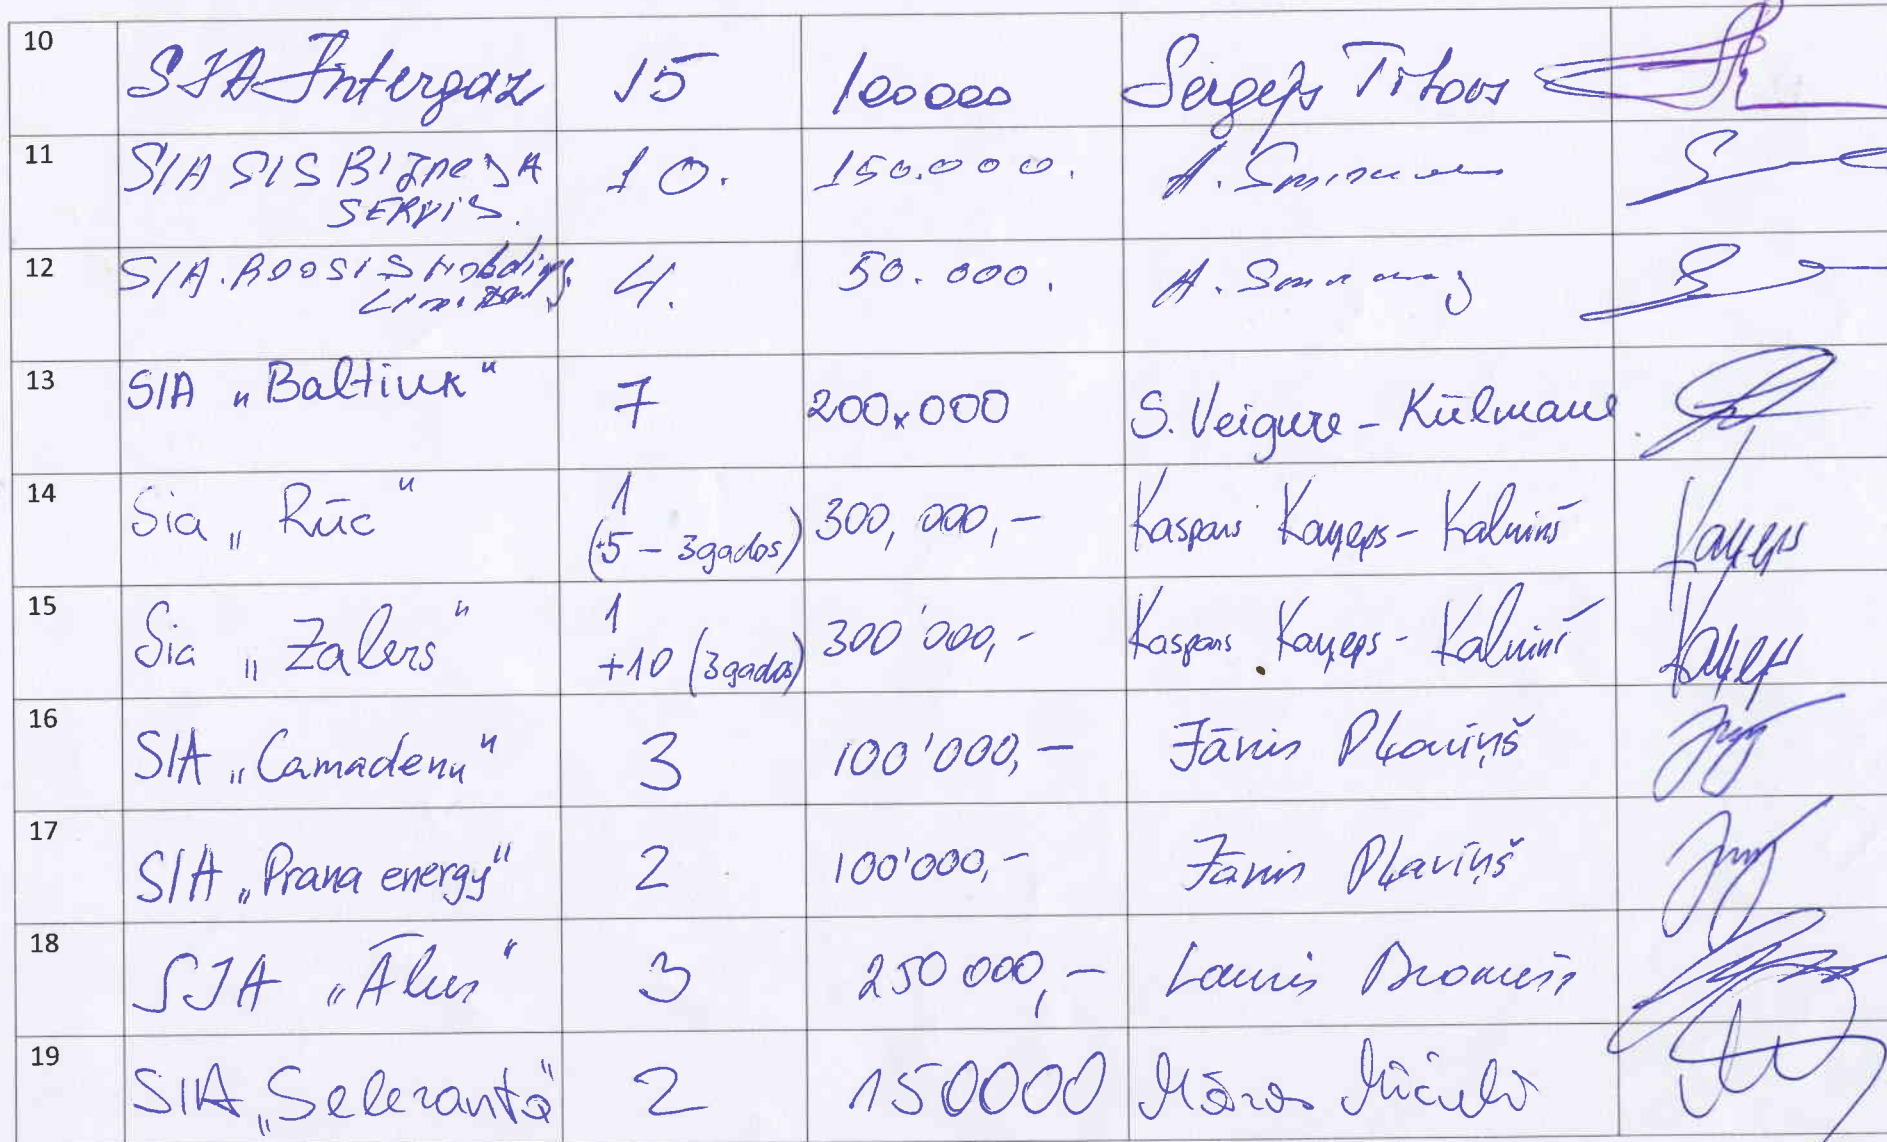 10 SIA Intergaz 15 100000 Sergejs Titovs
11 SIA SIS BIZNESA 10. 150.000. A.
SERVIS.
12 SIA. ROOSIS Holdings 4. 50.000. A.
13 SIA „Baltiuk“ 7 200.000 S. Veigure - Kūlmane
14 Sia „Rūc“ 1 300,000,- Kaspars Kaņeps - Kalniņš
(+5 - 3gados)
15 Sia „Zalers“ 1 300'000,- Kaspars Kaņeps - Kalniņš
+10 (3gados)
16 SIA „Camadenu“ 3 100'000,- Jānis Pļaviņš
17 SIA „Prana energy“ 2 100'000,- Jānis Pļaviņš
18 SIA „Ālus“ 3 250 000,- Lauris
19 SIA „Selezanta“ 2 150000